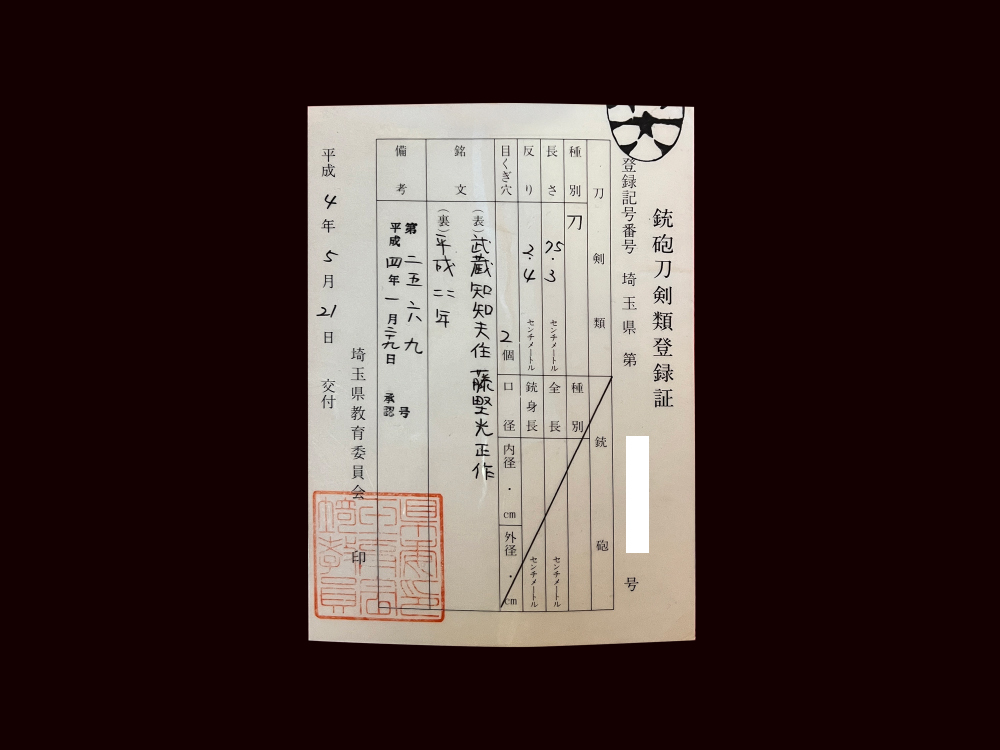 銃砲刀剣類登録証
登録記号番号 埼玉県 第 号
刀剣類 銃砲
種別 刀 種別
長さ 75.3 センチメートル 全長 センチメートル
反り 2.4 センチメートル 銃身長 センチメートル
目くぎ穴 2個 口径 内径 ・ cm 外径 ・ cm
銘文 (表)武蔵知知夫住藤墅光正作
(裏)平成二二年
備考 第二五六九号
平成四年一月二九日 承認
埼玉県教育委員会 印
平成4年5月21日 交付